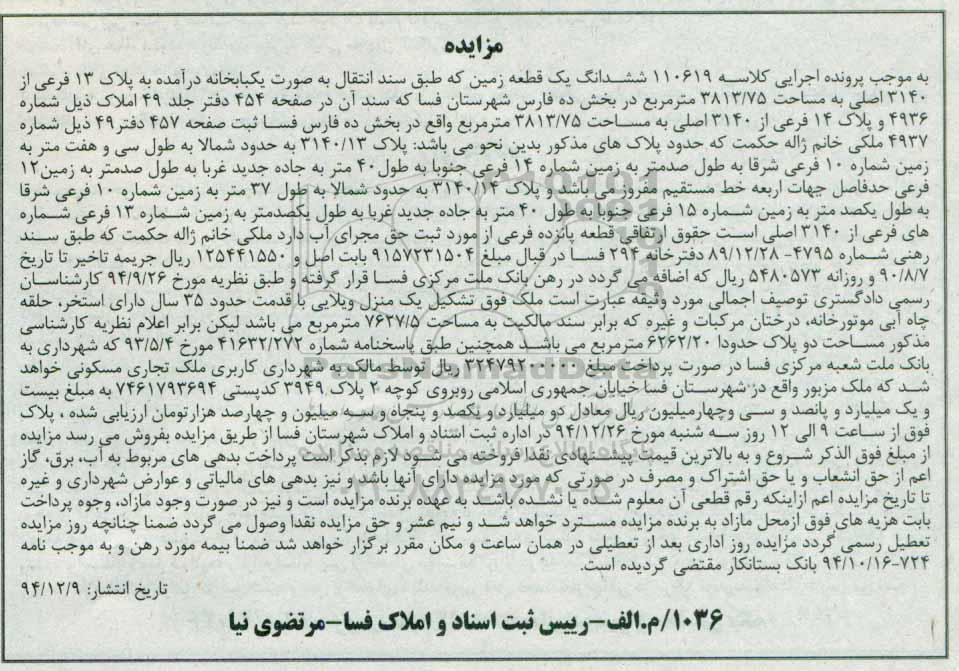 مزایده
به موجب پرونده اجرایی کلاسه ۱۱۰۶۱۹ ششدانگ یک قطعه زمین که طبق سند انتقال به صورت یکبابخانه درآمده به پلاک ۱۳ فرعی از
۳۱۴۰ اصلی به مساحت ۳۸۱۳/۷۵ مترمربع در بخش ده فارس شهرستان فسا که سند آن در صفحه ۴۵۴ دفتر جلد ۴۹ املاک ذیل شماره
۴۹۳۶ و پلاک ۱۴ فرعی از ۳۱۴۰ اصلی به مساحت ۳۸۱۳/۷۵ مترمربع واقع در بخش ده فارس فسا ثبت صفحه ۴۵۷ دفتر ۴۹ ذیل شماره
۴۹۳۷ ملکی خانم ژاله حکمت که حدود پلاک های مذکور بدین نحو می باشد: پلاک ۳۱۴۰/۱۳ به حدود شمالا به طول سی و هفت متر به
زمین شماره ۱۰ فرعی شرقا به طول صدمتر به زمین شماره ۱۴ فرعی جنوبا به طول ۴۰ متر به جاده جدید غربا به طول صدمتر به زمین ۱۲
فرعی حدفاصل جهات اربعه خط مستقیم مفروز می باشد، و پلاک ۳۱۴۰/۱۴ به حدود شمالا به طول ۳۷ متر به زمین شماره ۱۰ فرعی شرقا
به طول یکصد متر به زمین شماره ۱۵ فرعی جنوبا به طول ۴۰ متر به جاده جدید غربا به طول یکصدمتر به زمین شماره ۱۳ فرعی شماره
های فرعی از ۳۱۴۰ اصلی است حقوق ارتفاقی قطعه پانزده فرعی از مورد ثبت حق مجرای آب دارد ملکی خانم ژاله حکمت که طبق سند
رهنی شماره ۴۷۹۵- ۸۹/۱۲/۲۸ دفترخانه ۲۹۴ فسا در قبال مبلغ ۹۱۵۷۲۳۱۵۰۴ بابت اصل و ۱۲۵۴۴۱۵۵۰ ریال جریمه تاخیر تا تاریخ
۹۰/۸/۷ و روزانه ۵۴۸۰۵۷۳ ریال که اضافه می گردد در رهن بانک ملت مرکزی فسا قرار گرفته و طبق نظریه مورخ ۹۴/۹/۲۶ کارشناسان
رسمی دادگستری توصیف اجمالی مورد وثیقه عبارت است ملک فوق تشکیل یک منزل ویلایی با قدمت حدود ۳۵ سال دارای استخر، حلقه
چاه آبی موتورخانه، درختان مرکبات و غیره که برابر سند مالکیت به مساحت ۷۶۲۷/۵ مترمربع می باشد لیکن برابر اعلام نظریه کارشناسی
مذکور مساحت دو پلاک حدودا ۶۲۶۲/۲۰ مترمربع می باشد همچنین طبق پاسخنامه شماره ۴۱۶۳۲/۲۷۲ مورخ ۹۳/۵/۴ که شهرداری به
بانک ملت شعبه مرکزی فسا در صورت پرداخت مبلغ ریال توسط مالک به شهرداری کاربری ملک تجاری مسکونی خواهد
شد که ملک مزبور واقع در شهرستان فسا خیابان جمهوری اسلامی روبروی کوچه ۲ پلاک ۳۹۴۹ کدپستی ۷۴۶۱۷۹۳۶۹۴ به مبلغ بیست
و یک میلیارد و پانصد و سی وچهارمیلیون ریال معادل دو میلیارد و یکصد و پنجاه و سه میلیون و چهارصد هزارتومان ارزیابی شده ، پلاک
فوق از ساعت ۹ الی ۱۲ روز سه شنبه مورخ ۹۴/۱۲/۲۶ در اداره ثبت اسناد و املاک شهرستان فسا از طریق مزایده بفروش می رسد مزایده
از مبلغ فوق الذکر شروع و به بالاترین قیمت پیشنهادی نقدا فروخته می شود لازم بذکر است پرداخت بدهی های مربوط به آب، برق، گاز
اعم از حق انشعاب و یا حق اشتراک و مصرف در صورتی که مورد مزایده دارای آنها باشد و نیز بدهی های مالیاتی و عوارض شهرداری و غیره
تا تاریخ مزایده اعم ازاینکه رقم قطعی آن معلوم شده یا نشده باشد به عهده برنده مزایده است و نیز در صورت وجود مازاد، وجوه پرداخت
بابت هزیه های فوق ازمحل مازاد به برنده مزایده مسترد خواهد شد و نیم عشر و حق مزایده نقدا وصول می گردد ضمنا چنانچه روز مزایده
تعطیل رسمی گردد مزایده روز اداری بعد از تعطیلی در همان ساعت و مکان مقرر برگزار خواهد شد ضمنا بیمه مورد رهن و به موجب نامه
۷۲۴-۹۴/۱۰/۱۶ بانک بستانکار مقتضی گردیده است.
تاریخ انتشار: ۹۴/۱۲/۹
۱۰۳۶/م.الف-رییس ثبت اسناد و املاک فسا-مرتضوی نیا